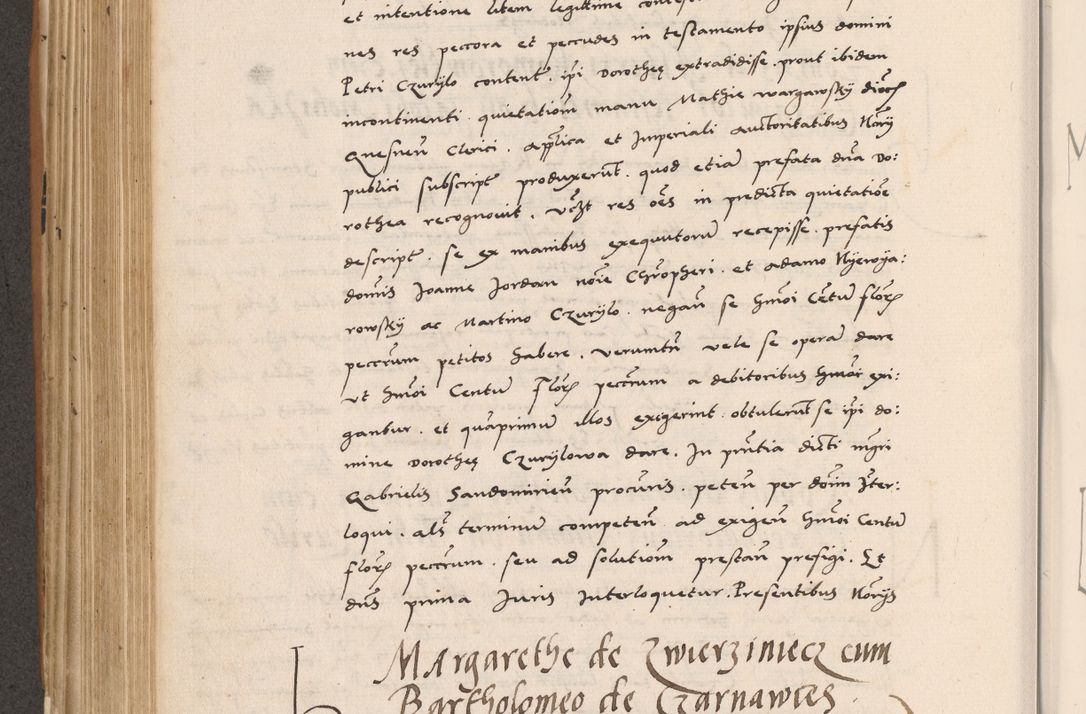 et intentione litem legittime
nes res peccora et peccudes in testamento ipsius domini
Petri Czurylo content. ipi Dorotheę extradidisse, prout ibidem
incontinenti. quietationem manu Mathie Wargawsky dioc
Gnesnen Clerici. Applica et Imperiali Auctoritatibus Nory
publici subscript produxerunt. quod etia prefata dna Do:
rothea recognovit. Uczt res oes in predicta quietatioe
descript. se ex manibus exequutoru recepisse. prefatis
domis Joanne Jordan noie Chropheri. et Adamo Nyewya:
rowsky ac Martino Czurylo. negan se hmoi Centu florz
peccrum petitos habere. verumtn vele se opera dare
ut hmoi Centu Florz peccrum a debitoribus hmoi exi:
gantur. et quaprimu illos exigerint. obtulerut se ipi do:
mine Dorotheę Czurylowa dare. In pntia dicti mgri
Gabrielis Sandomirien procuris. peten per domi Inter:
loqui. als terminu competen ad exigen hmoi Centu
florz peccrum. seu ad solutiom prestan prefigi. Et
dns prima Iuris Interloquetur. Presentibus Norys
Margarethe de Zwierziniecz cum
Bartholomeo de Czarnawies